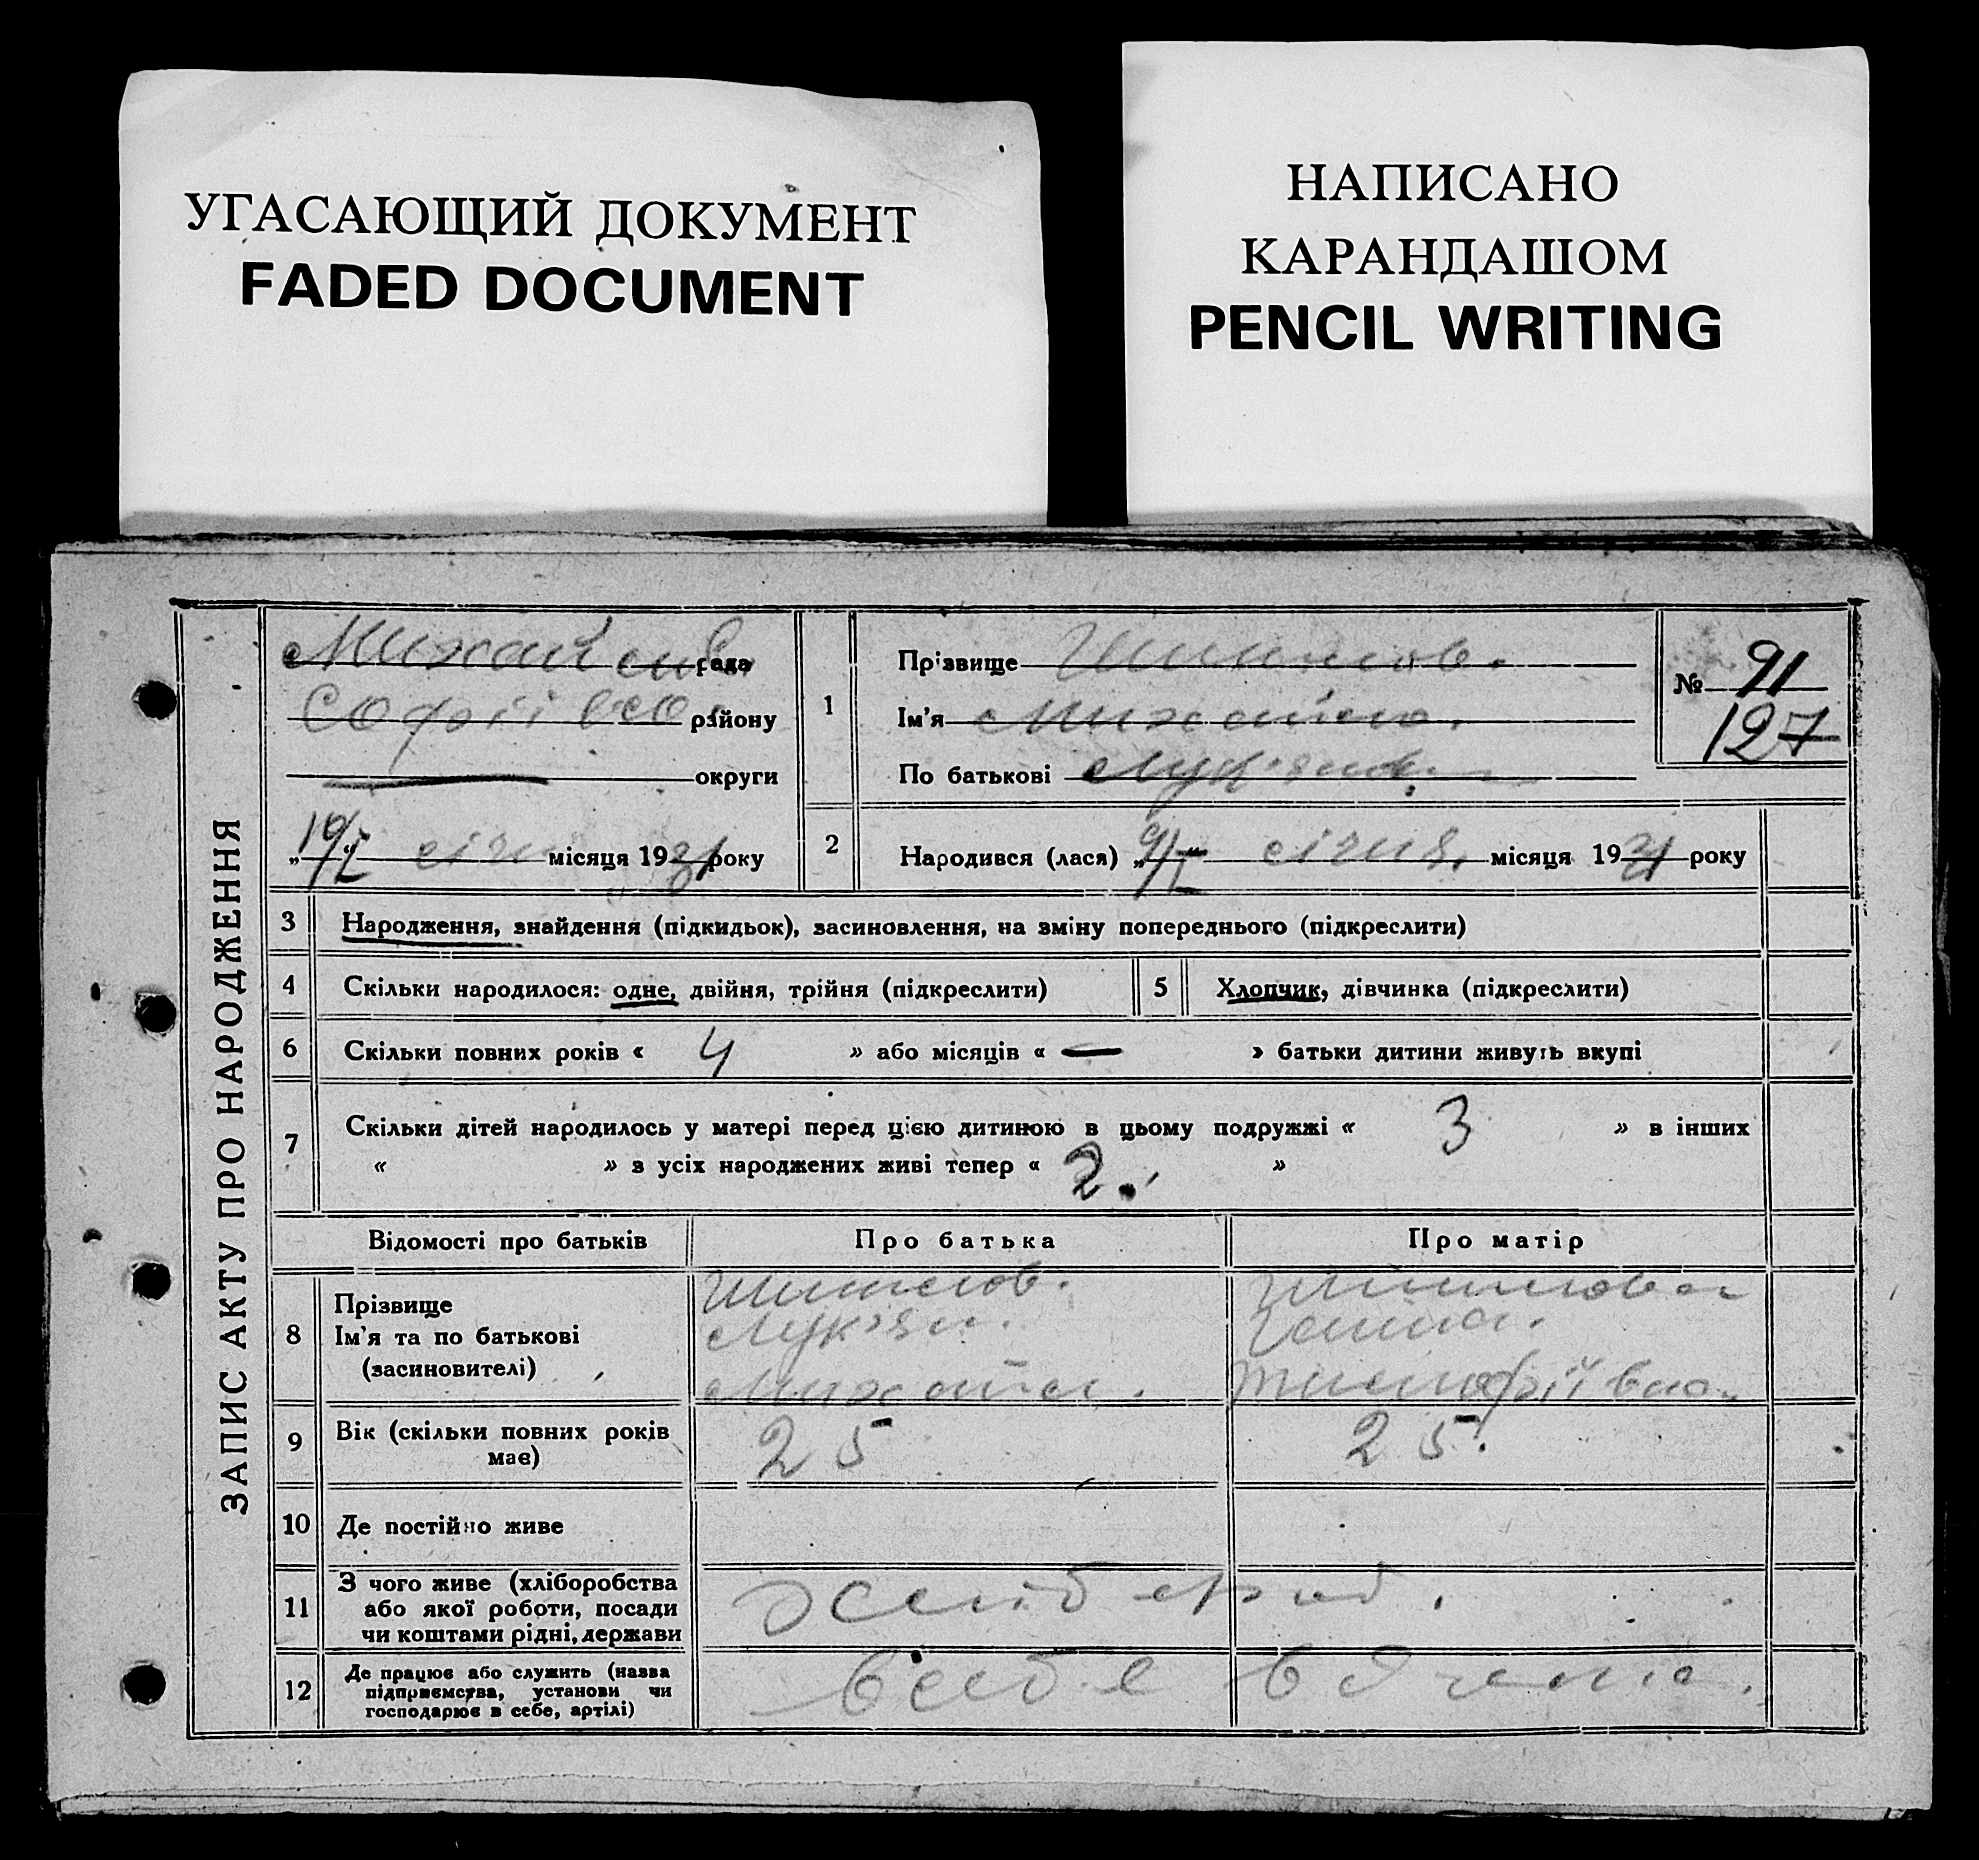 УГАСАЮЩИЙ ДОКУМЕНТ
FADED DOCUMENT
НАПИСАНО
КАРАНДАШОМ
PENCIL WRITING
ЗАПИС АКТУ ПРО НАРОДЖЕННЯ
рада
району
округи
„ “ січня місяця 1931 року
1 Прізвище
Ім'я Михайло.
По батькові Лук'янов.
№ 91
127
2 Народився (лася) „9/I“ січня, місяця 1931 року
3 Народження, знайдення (підкидьок), засиновлення, на зміну попереднього (підкреслити)
4 Скільки народилося: одне, двійня, трійня (підкреслити) 5 Хлопчик, дівчинка (підкреслити)
6 Скільки повних років « 4 » або місяців « — » батьки дитини живуть вкупі
7 Скільки дітей народилось у матері перед цією дитиною в цьому подружжі « 3 » в інших
« » з усіх народжених живі тепер « 2. »
Відомості про батьків Про батька Про матір
8 Прізвище
Ім'я та по батькові Лук'ян. Ганна.
(засиновителі) Тимофіївна
9 Вік (скільки повних років має) 25 25.
10 Де постійно живе
11 З чого живе (хліборобства
або якої роботи, посади
чи коштами рідні, держави
12 Де працює або служить (назва
підприємства, установи чи
господарює в себе, артілі)